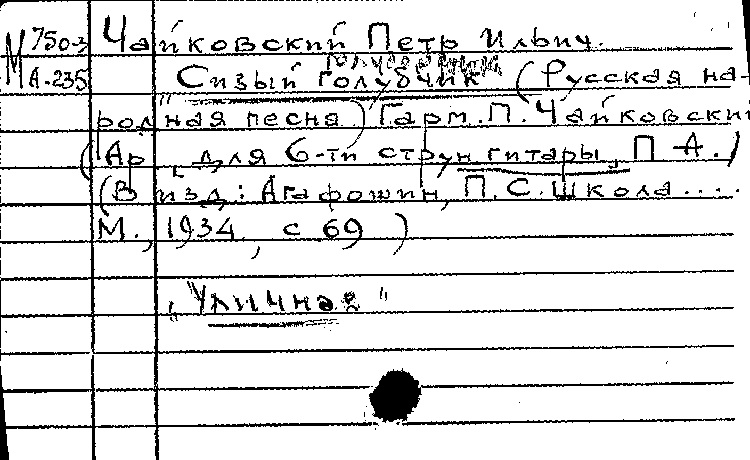 М 750-3 Чайковский Петр Ильич.
А-235 "Сизый голубчик" (Русская на-
родная песня) Гарм. П. Чайковский
(Ар. для 6-ти струн гитары, П А.)
(В изд: Агафошин, П. С. Школа ....
М., 1934, с 69)
"Уличная"